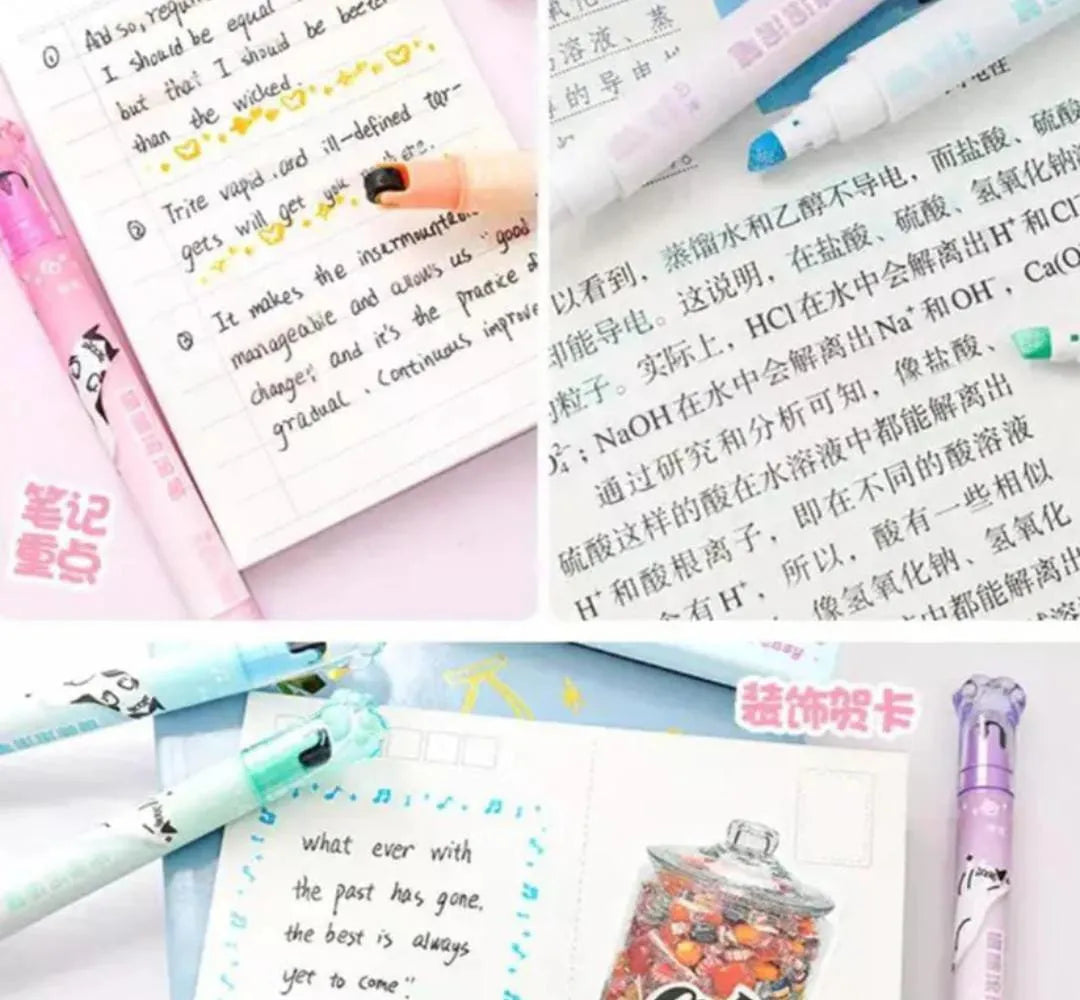 ① And so, requi
I should be equal
but that I should be better
than the wicked.
② Trite vapid and ill-defined tar-
gets will get you
③ It makes the insurmountab
manageable and allows us "good
change: and it's the practice of
gradual. Continuous improve
笔记
重点
氧化
溶液、蒸
的导电
电性
蒸馏水和乙醇不导电，而盐酸、硫酸
以看到，
在盐酸、硫酸、氢氧化钠
即能导电。这说明，
HCl在水中会解离出H⁺和Cl
粒子。实际上，
Ca(O
；NaOH在水中会解离出Na⁺和OH⁻，
通过研究和分析可知，像盐酸、
硫酸这样的酸在水溶液中都能解离出
H⁺和酸根离子，即在不同的酸溶液
含有H⁺，所以，酸有一些相似
像氢氧化钠、氢氧化
中都能解离出
装饰贺卡
what ever with
the past has gone.
the best is always
yet to come"